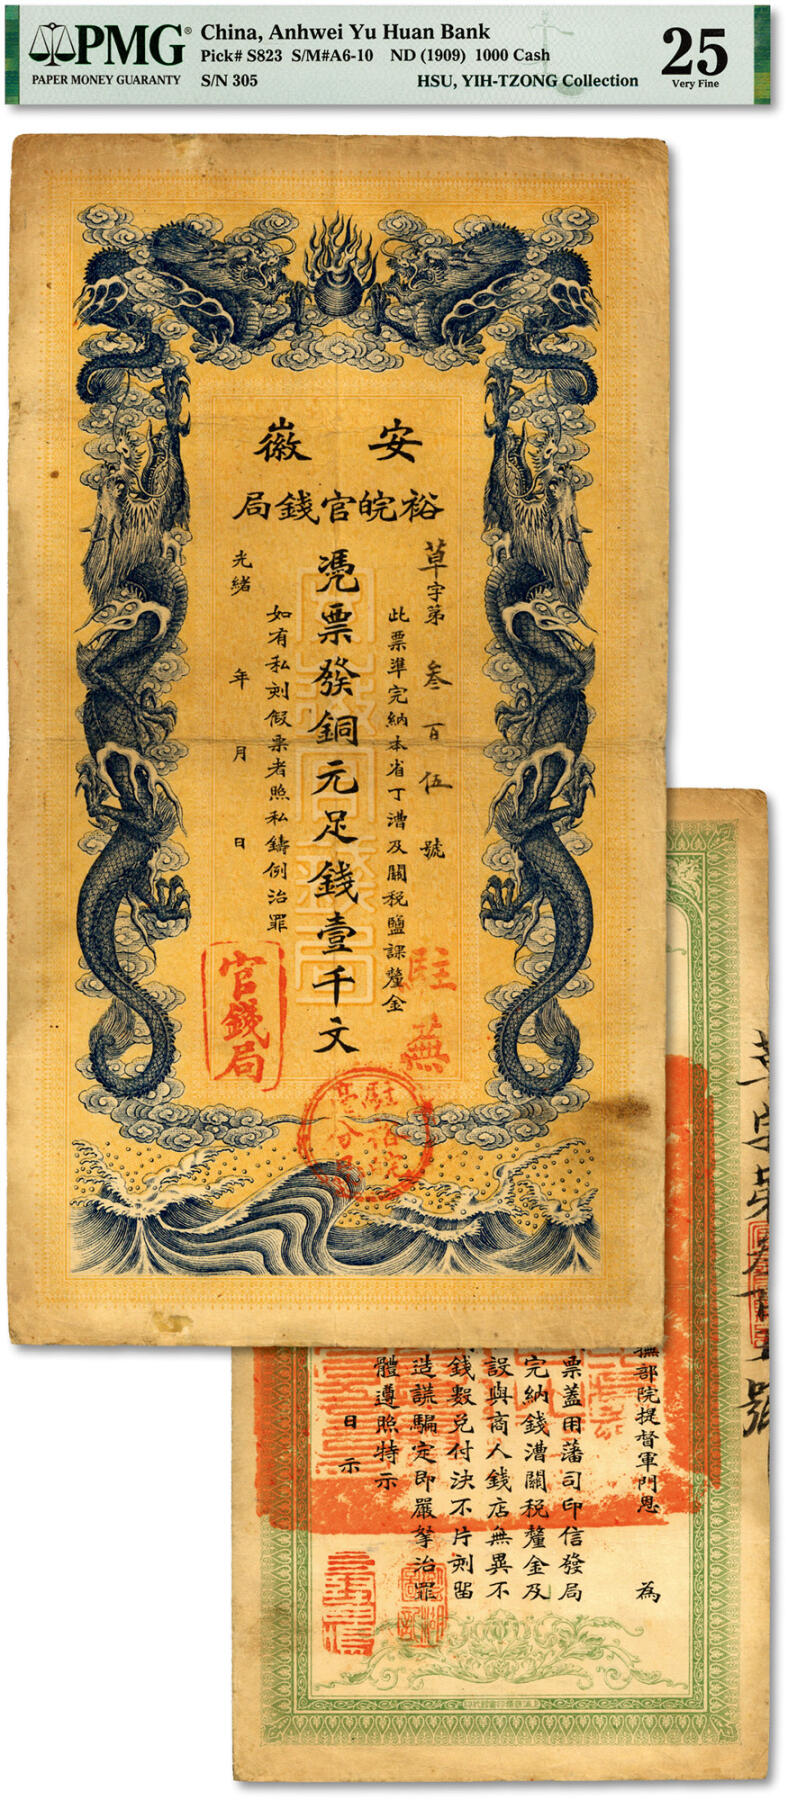 PMG®
PAPER MONEY GUARANTY
China, Anhwei Yu Huan Bank
Pick# S823 S/M#A6-10 ND (1909) 1000 Cash
S/N 305
HSU, YIH-TZONG Collection
25
Very Fine
安徽
裕皖官錢局
草字第叁百伍號
此票準完納本省丁漕及關稅鹽課釐金
憑票發銅元足錢壹千文
如有私刻假票者照私鑄例治罪
光緒 年 月 日
駐蕪
官錢局
草字第叁百五號
撫部院提督軍門恩 為
票蓋用藩司印信發局
完納錢漕關稅釐金及
設與商人錢店無異不
錢數兌付決不片刻留
造謊騙定即嚴拏治罪
體遵照特示
日示